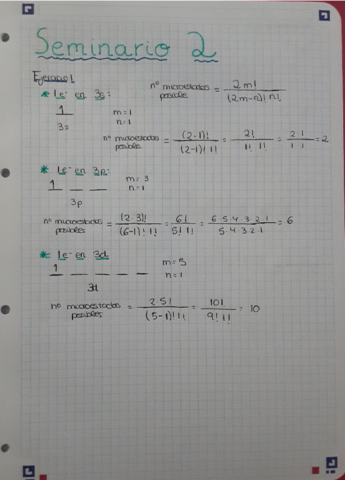 Seminario 2
Ejercicio 1
nº microestados posibles = 2m! / (2m-n)! n!
* 1e⁻ en 3s:
1
3s
m = 1
n = 1
nº microestados posibles = (2·1)! / (2-1)! 1! = 2! / 1! 1! = 2·1 / 1·1 = 2
* 1e⁻ en 3p:
1 _ _
3p
m = 3
n = 1
nº microestados posibles = (2·3)! / (6-1)! 1! = 6! / 5! 1! = 6·5·4·3·2·1 / 5·4·3·2·1 = 6
* 1e⁻ en 3d:
1 _ _ _ _
3d
m = 5
n = 1
nº microestados posibles = 2·5! / (5-1)! 1! = 10! / 9! 1! = 10